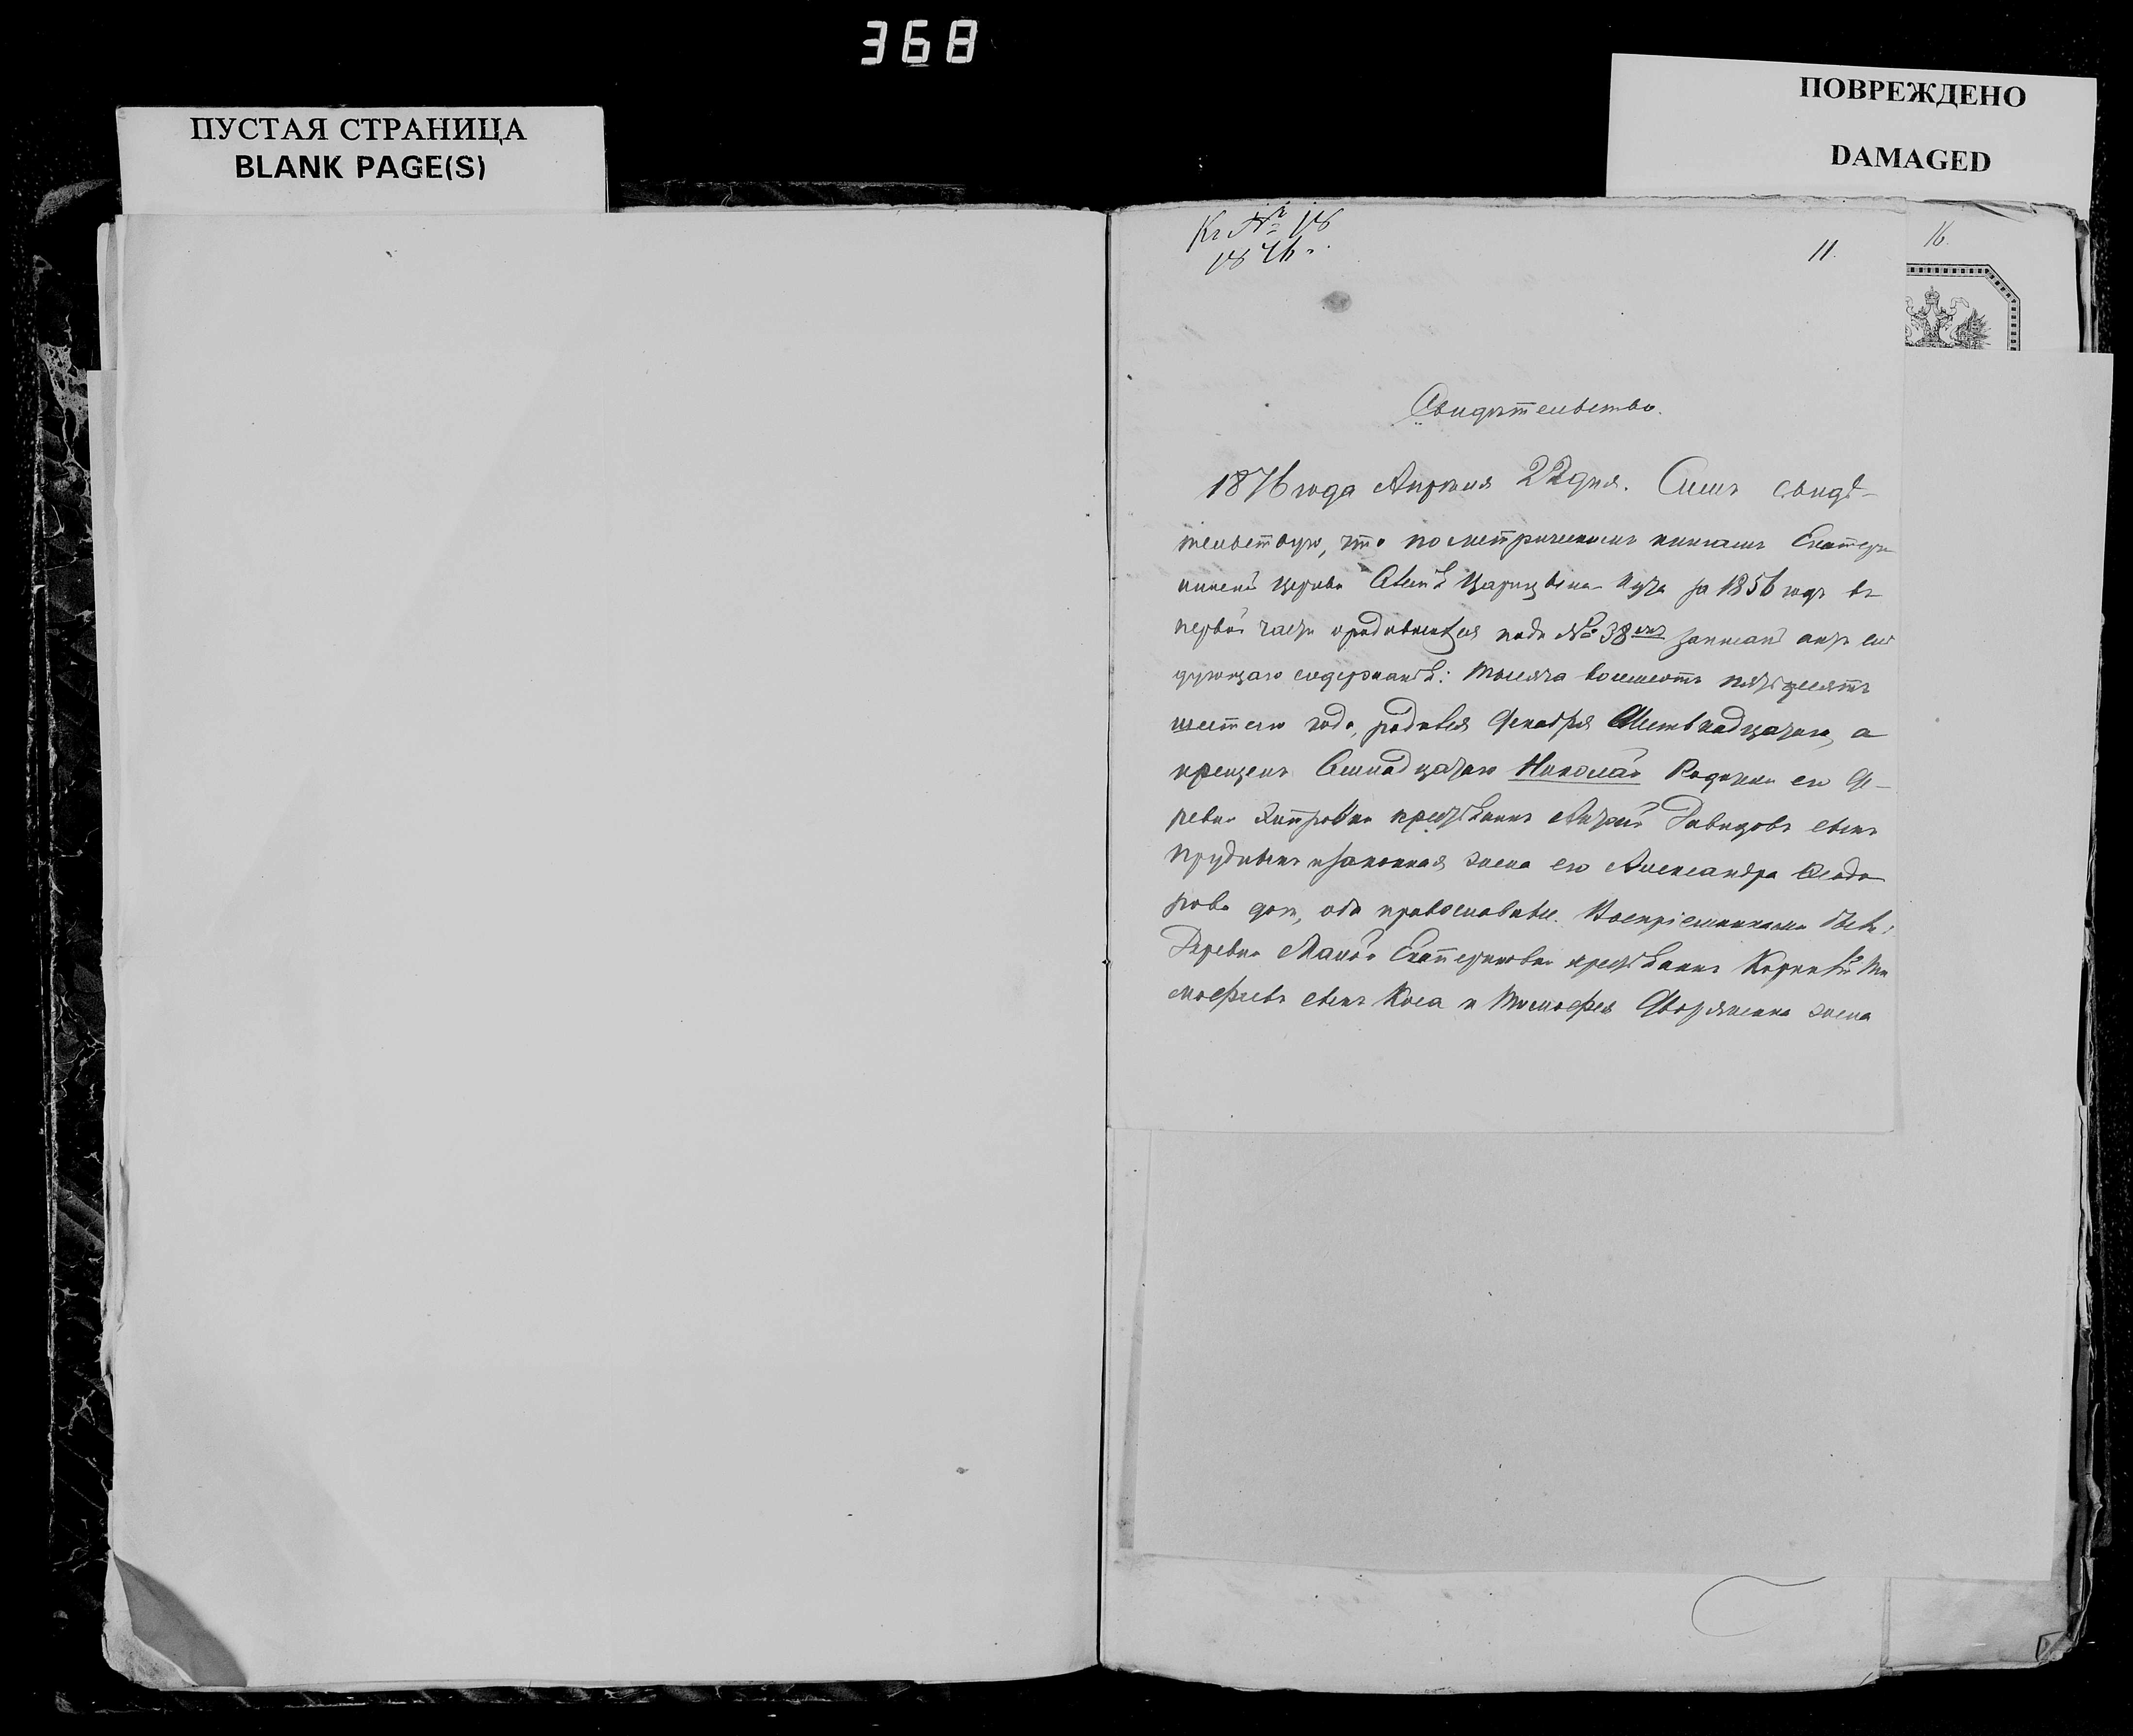 368
ПУСТАЯ СТРАНИЦА
BLANK PAGE(S)
ПОВРЕЖДЕНО
DAMAGED
Къ № 18
1876 г.
11.
16.
Свидѣтельство.
1876 года Апрѣля 22 дня. Симъ свидѣ-
тельствую, что по метрическимъ книгамъ Екатери
нинской церкви за 1856 годъ въ
первой части о родившихся подъ № 38мъ записанъ актъ слѣ
дующаго содержанія: Тысяча восемьсотъ пятьдесятъ
шестаго года, родился Декабря Шестнадцатаго, а
крещенъ Семнадцатаго Николай Родители его Де-
ревни Хитровки крестьянинъ Давидовъ сынъ
и законная жена его Александра Ѳеодо
рова дочь, оба православные. Воспріемниками были:
Деревни Малой Екатериновки крестьянинъ Корнилій Ти
моѳеевъ сынъ Коса и Тимоѳея жена